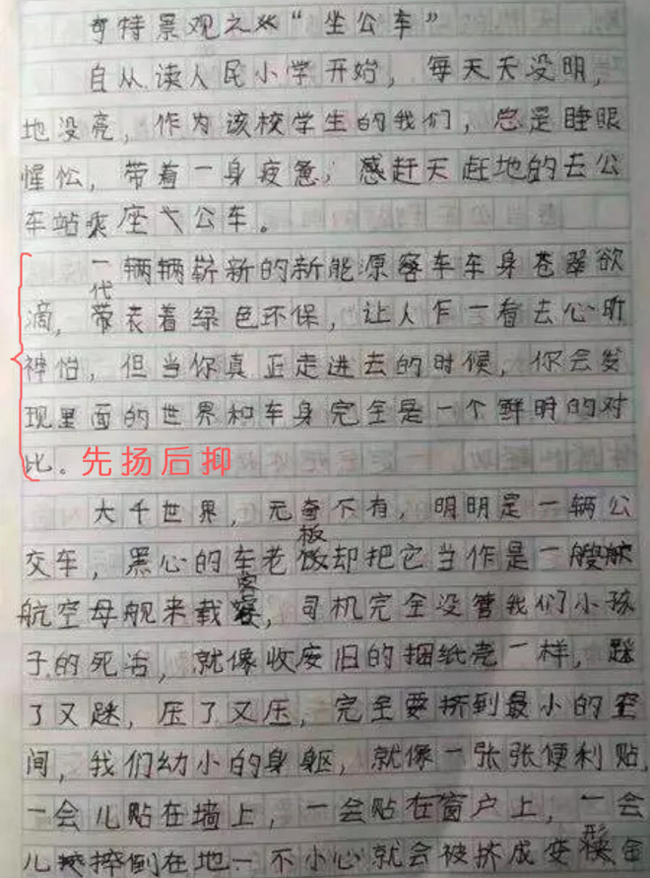 奇特景观之"坐公车"
自从读人民小学开始，每天天没明，
地没亮，作为该校学生的我们，总是睡眼
惺忪，带着一身疲惫，感赶天赶地的去公
车站乘座公车。
一辆辆崭新的新能源客车车身苍翠欲
滴，代表着绿色环保，让人乍一看去心旷
神怡，但当你真正走进去的时候，你会发
现里面的世界和车身完全是一个鲜明的对
比。先扬后抑
大千世界，无奇不有，明明是一辆公
交车，黑心的车老板却把它当作是一艘
航空母舰来载客，司机完全没管我们小孩
子的死活，就像收废旧的捆纸壳一样，踩
了又踩，压了又压，完全要挤到最小的空
间，我们幼小的身躯，就像一张张便利贴，
一会儿贴在墙上，一会贴在窗户上，一会
儿摔倒在地一不小心就会被挤成变形金